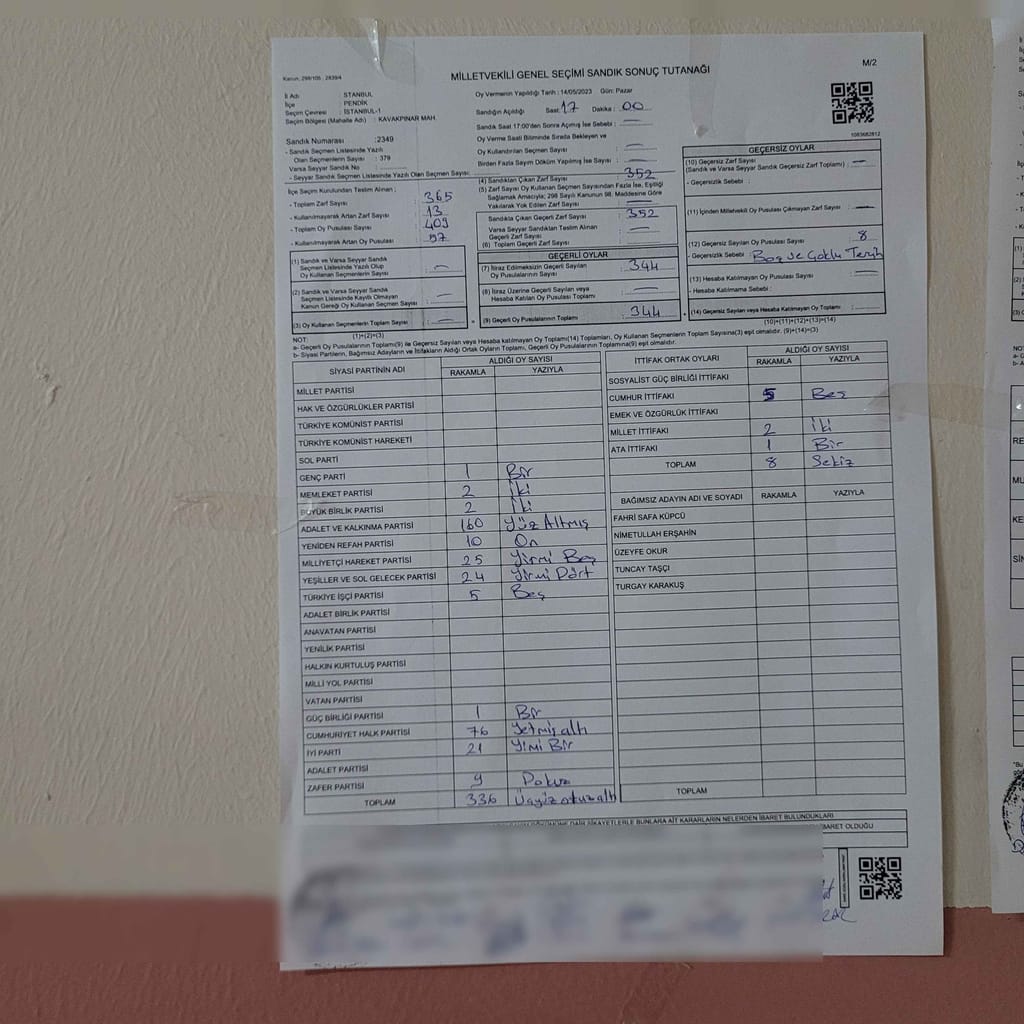 Kanun: 298/105 : 2839/4
MİLLETVEKİLİ GENEL SEÇİMİ SANDIK SONUÇ TUTANAĞI
M/2
İl Adı : STANBUL
İlçe : PENDİK
Seçim Çevresi : İSTANBUL-1
Seçim Bölgesi (Mahalle Adı) : KAVAKPINAR MAH.
Sandık Numarası : 2349
- Sandık Seçmen Listesinde Yazılı
Olan Seçmenlerin Sayısı : 379
Varsa Seyyar Sandık No
- Seyyar Sandık Seçmen Listesinde Yazılı Olan Seçmen Sayısı:
Oy Vermenin Yapıldığı Tarih : 14/05/2023 Gün: Pazar
Sandığın Açıldığı Saat: 17 Dakika : 00
Sandık Saat 17:00'den Sonra Açılmış İse Sebebi : —
Oy Verme Saati Bitiminde Sırada Bekleyen ve
Oy Kullandırılan Seçmen Sayısı : —
Birden Fazla Sayım Döküm Yapılmış İse Sayısı : —
1083682812
İlçe Seçim Kurulundan Teslim Alınan ;
- Toplam Zarf Sayısı : 365
- Kullanılmayarak Artan Zarf Sayısı : 13
- Toplam Oy Pusulası Sayısı : 409
- Kullanılmayarak Artan Oy Pusulası : 57
(1) Sandık ve Varsa Seyyar Sandık
Seçmen Listesinde Yazılı Olup
Oy Kullanan Seçmenlerin Sayısı : —
(2) Sandık ve Varsa Seyyar Sandık
Seçmen Listesinde Kayıtlı Olmayan
Kanun Gereği Oy Kullanan Seçmen Sayısı : —
(3) Oy Kullanan Seçmenlerin Toplam Sayısı : —
(1)+(2)=(3)
(4) Sandıktan Çıkan Zarf Sayısı : 352
(5) Zarf Sayısı Oy Kullanan Seçmen Sayısından Fazla İse, Eşitliği
Sağlamak Amacıyla; 298 Sayılı Kanunun 98. Maddesine Göre
Yakılarak Yok Edilen Zarf Sayısı : —
Sandıkta Çıkan Geçerli Zarf Sayısı : 352
Varsa Seyyar Sandıktan Teslim Alınan
Geçerli Zarf Sayısı : —
(6) Toplam Geçerli Zarf Sayısı :
GEÇERLİ OYLAR
(7) İtiraz Edilmeksizin Geçerli Sayılan
Oy Pusulalarının Sayısı : 344
(8) İtiraz Üzerine Geçerli Sayılan veya
Hesaba Katılan Oy Pusulası Toplamı : —
(9) Geçerli Oy Pusulalarının Toplamı : 344
GEÇERSİZ OYLAR
(10) Geçersiz Zarf Sayısı
(Sandık ve Varsa Seyyar Sandık Geçersiz Zarf Toplamı) : —
- Geçersizlik Sebebi :
(11) İçinden Milletvekili Oy Pusulası Çıkmayan Zarf Sayısı : —
(12) Geçersiz Sayılan Oy Pusulası Sayısı : 8
- Geçersizlik Sebebi : Boş ve Çoklu Terih
(13) Hesaba Katılmayan Oy Pusulası Sayısı : —
- Hesaba Katılmama Sebebi :
(14) Geçersiz Sayılan veya Hesaba Katılmayan Oy Toplamı : —
(10)+(11)+(12)+(13)=(14)
NOT:
a- Geçerli Oy Pusulalarının Toplamı(9) ile Geçersiz Sayılan veya Hesaba Katılmayan Oy Toplamı(14) Toplamları, Oy Kullanan Seçmenlerin Toplam Sayısına(3) eşit olmalıdır. (9)+(14)=(3)
b- Siyasi Partilerin, Bağımsız Adayların ve İttifakların Aldığı Ortak Oyların Toplamı, Geçerli Oy Pusulalarının Toplamına(9) eşit olmalıdır.
SİYASİ PARTİNİN ADI ALDIĞI OY SAYISI
RAKAMLA YAZIYLA
MİLLET PARTİSİ
HAK VE ÖZGÜRLÜKLER PARTİSİ
TÜRKİYE KOMÜNİST PARTİSİ
TÜRKİYE KOMÜNİST HAREKETİ
SOL PARTİ
GENÇ PARTİ 1 Bir
MEMLEKET PARTİSİ 2 İki
BÜYÜK BİRLİK PARTİSİ 2 İki
ADALET VE KALKINMA PARTİSİ 160 Yüz Altmış
YENİDEN REFAH PARTİSİ 10 On
MİLLİYETÇİ HAREKET PARTİSİ 25 Yirmi Beş
YEŞİLLER VE SOL GELECEK PARTİSİ 24 Yirmi Dört
TÜRKİYE İŞÇİ PARTİSİ 5 Beş
ADALET BİRLİK PARTİSİ
ANAVATAN PARTİSİ
YENİLİK PARTİSİ
HALKIN KURTULUŞ PARTİSİ
MİLLİ YOL PARTİSİ
VATAN PARTİSİ
GÜÇ BİRLİĞİ PARTİSİ 1 Bir
CUMHURİYET HALK PARTİSİ 76 Yetmişaltı
İYİ PARTİ 21 Yimi Bir
ADALET PARTİSİ
ZAFER PARTİSİ 9 Dokuz
TOPLAM 336 Üçyüzotuzaltı
İTTİFAK ORTAK OYLARI ALDIĞI OY SAYISI
RAKAMLA YAZIYLA
SOSYALİST GÜÇ BİRLİĞİ İTTİFAKI
CUMHUR İTTİFAKI 5 Beş
EMEK VE ÖZGÜRLÜK İTTİFAKI
MİLLET İTTİFAKI 2 İki
ATA İTTİFAKI 1 Bir
TOPLAM 8 Sekiz
BAĞIMSIZ ADAYIN ADI VE SOYADI RAKAMLA YAZIYLA
FAHRİ SAFA KÜPCÜ
NİMETULLAH ERŞAHİN
ÜZEYFE OKUR
TUNCAY TAŞÇI
TURGAY KARAKUŞ
TOPLAM
ŞİKAYETLERLE BUNLARA AİT KARARLARIN NELERDEN İBARET BULUNDUKLARI
BARET OLDUĞU